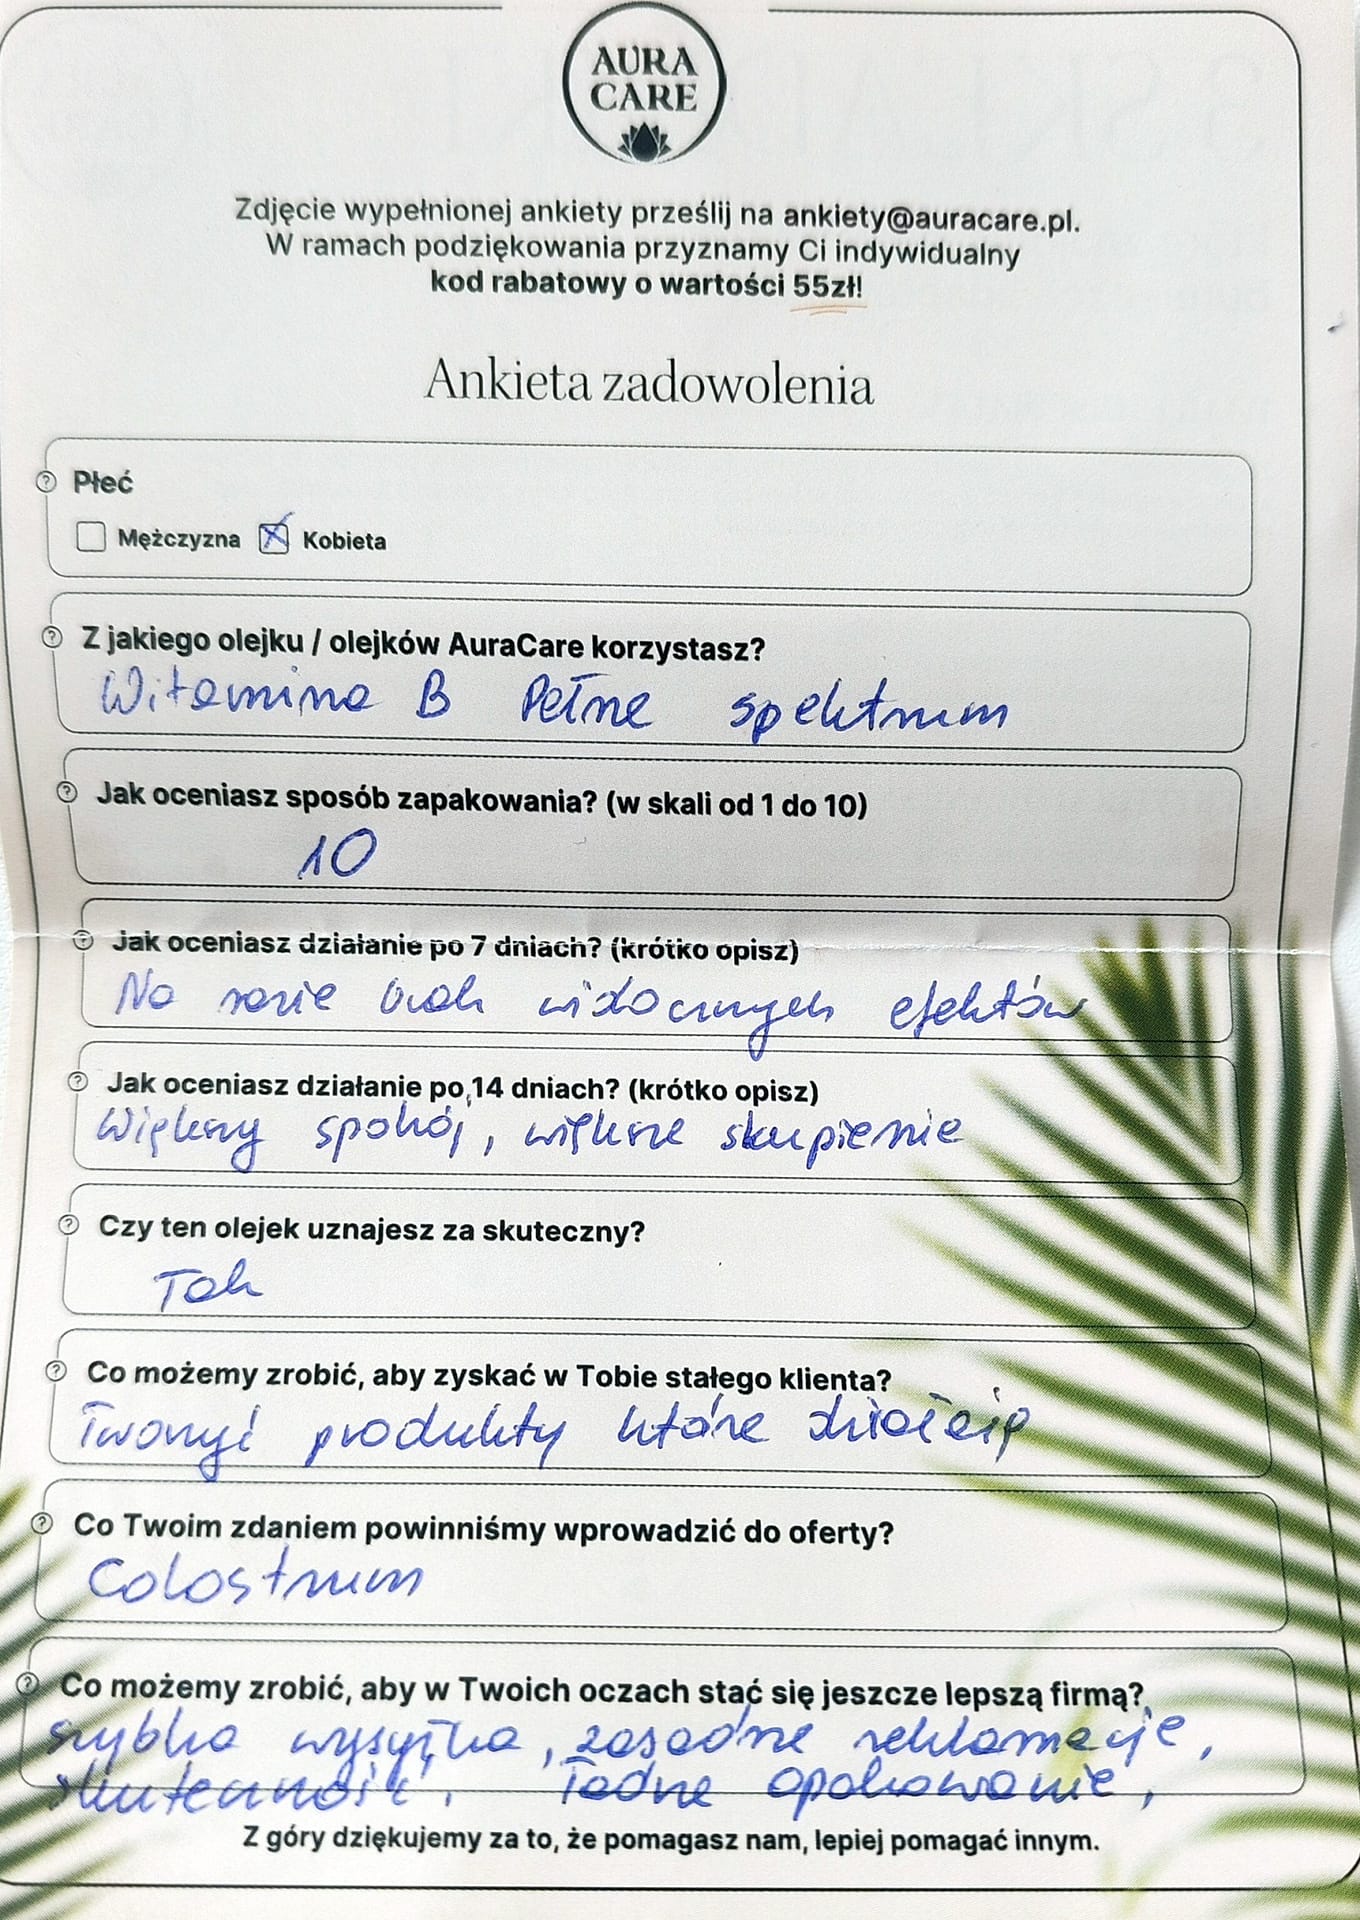 AURA
CARE
Zdjęcie wypełnionej ankiety prześlij na ankiety@auracare.pl.
W ramach podziękowania przyznamy Ci indywidualny
kod rabatowy o wartości 55zł!
Ankieta zadowolenia
Płeć
Mężczyzna Kobieta
Z jakiego olejku / olejków AuraCare korzystasz?
Witamina B Pełne spektrum
Jak oceniasz sposób zapakowania? (w skali od 1 do 10)
10
Jak oceniasz działanie po 7 dniach? (krótko opisz)
Na razie brak widocznych efektów
Jak oceniasz działanie po 14 dniach? (krótko opisz)
Większy spokój, większe skupienie
Czy ten olejek uznajesz za skuteczny?
Tak
Co możemy zrobić, aby zyskać w Tobie stałego klienta?
Tworzyć produkty które działają
Co Twoim zdaniem powinniśmy wprowadzić do oferty?
Colostrum
Co możemy zrobić, aby w Twoich oczach stać się jeszcze lepszą firmą?
szybka wysyłka, zasadne reklamacje,
skuteczność, ładne opakowanie,
Z góry dziękujemy za to, że pomagasz nam, lepiej pomagać innym.